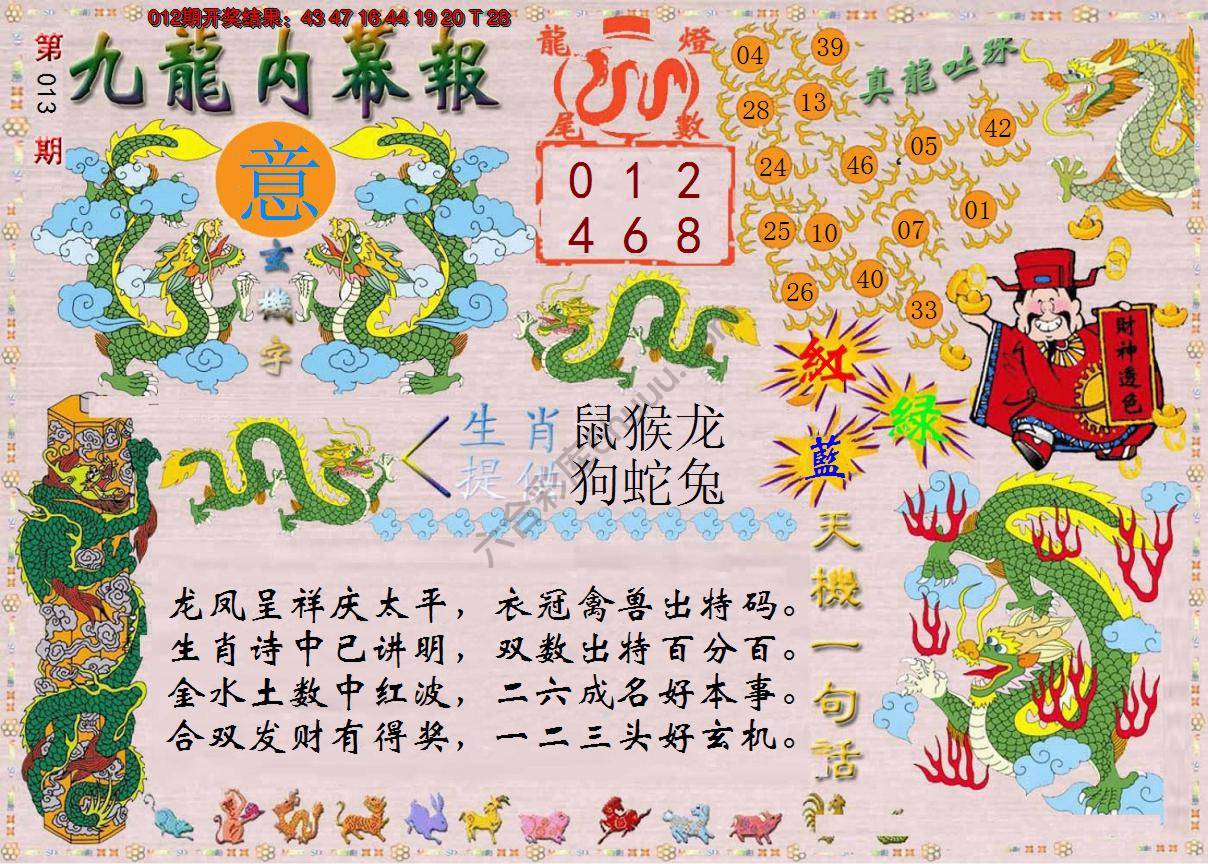 012期开奖结果：43 47 16 44 19 20 T 28
第013期
九龍内幕報
意
玄機字
龍燈
尾數
0 1 2
4 6 8
真龍吐珠
04 39
28 13
05 42
24 46
25 10 07 01
26 40 33
財神透色
紅
綠
藍
生肖提供
鼠猴龙
狗蛇兔
六合彩库
天機一句話
龙凤呈祥庆太平，衣冠禽兽出特码。
生肖诗中已讲明，双数出特百分百。
金水土数中红波，二六成名好本事。
合双发财有得奖，一二三头好玄机。